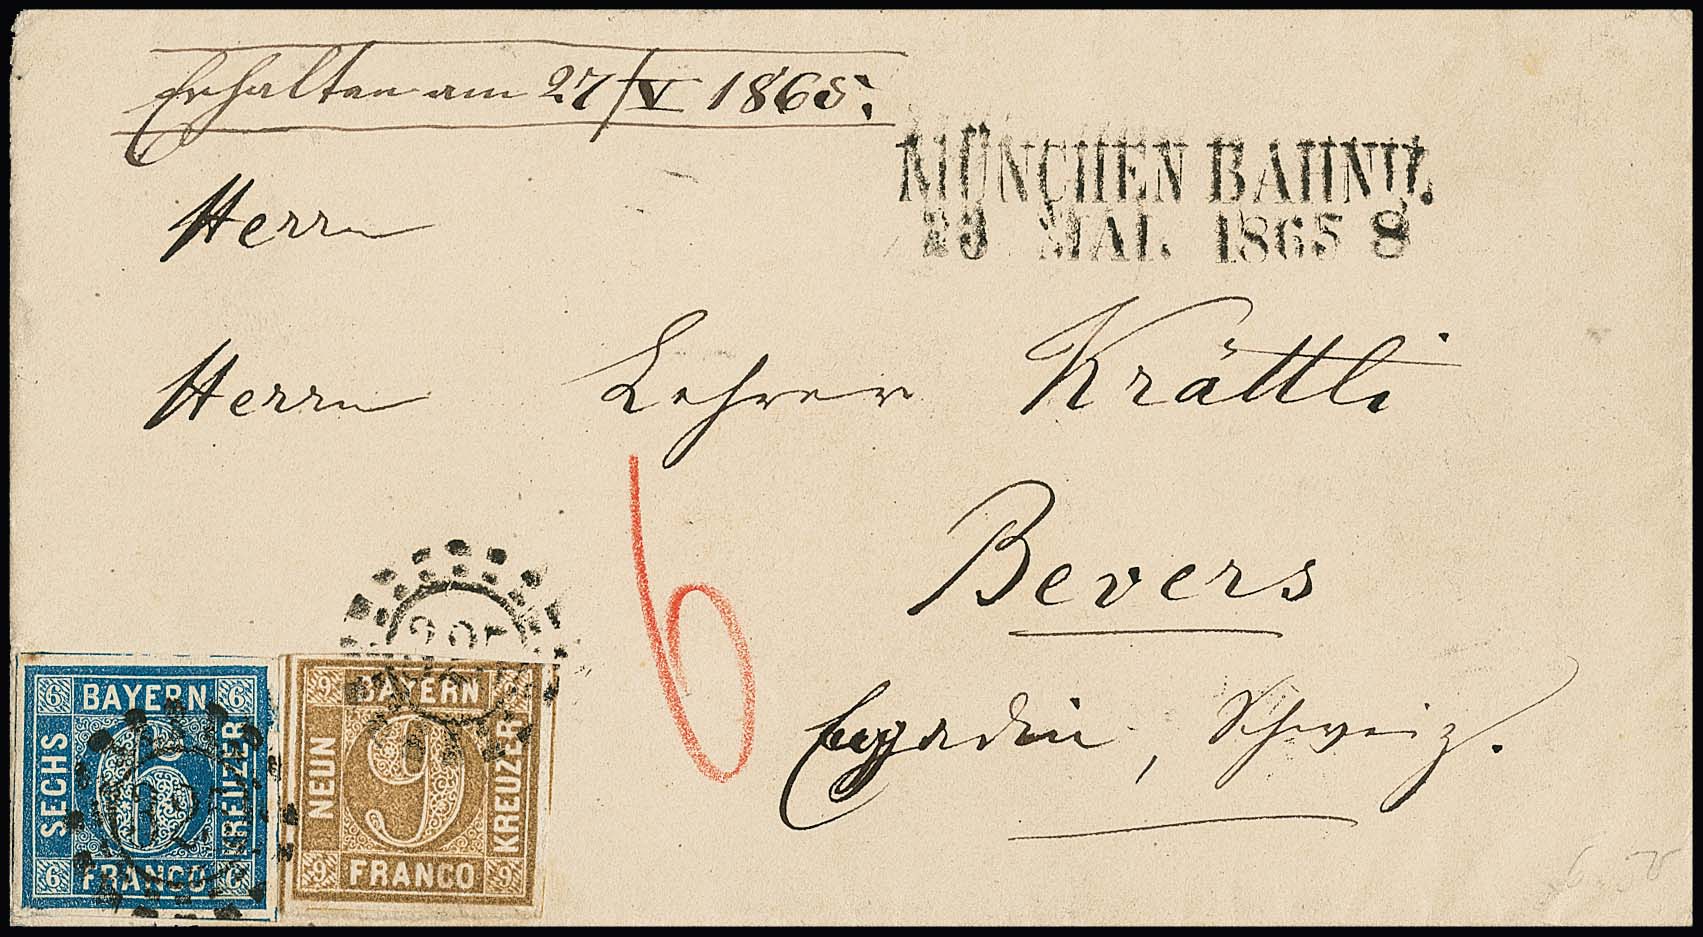 Erhalten am 27/V 1865.
MÜNCHEN BAHNH.
MAI. 1865 8
Herrn
Herrn Lehrer Krättli
Bevers
Engadin, Schweiz.
6
6 BAYERN 6
SECHS 6 KREUZER
6 FRANCO 6
9 BAYERN 9
NEUN 9 KREUZER
9 FRANCO 9